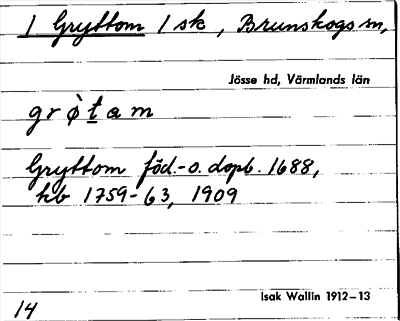 1 Gryttom 1 sk, Brunskogs sn,
Jösse hd, Värmlands län
grò̀tam
Gryttom föd.-o. dopb. 1688,
hb 1759-63, 1909
Isak Wallin 1912-13
14